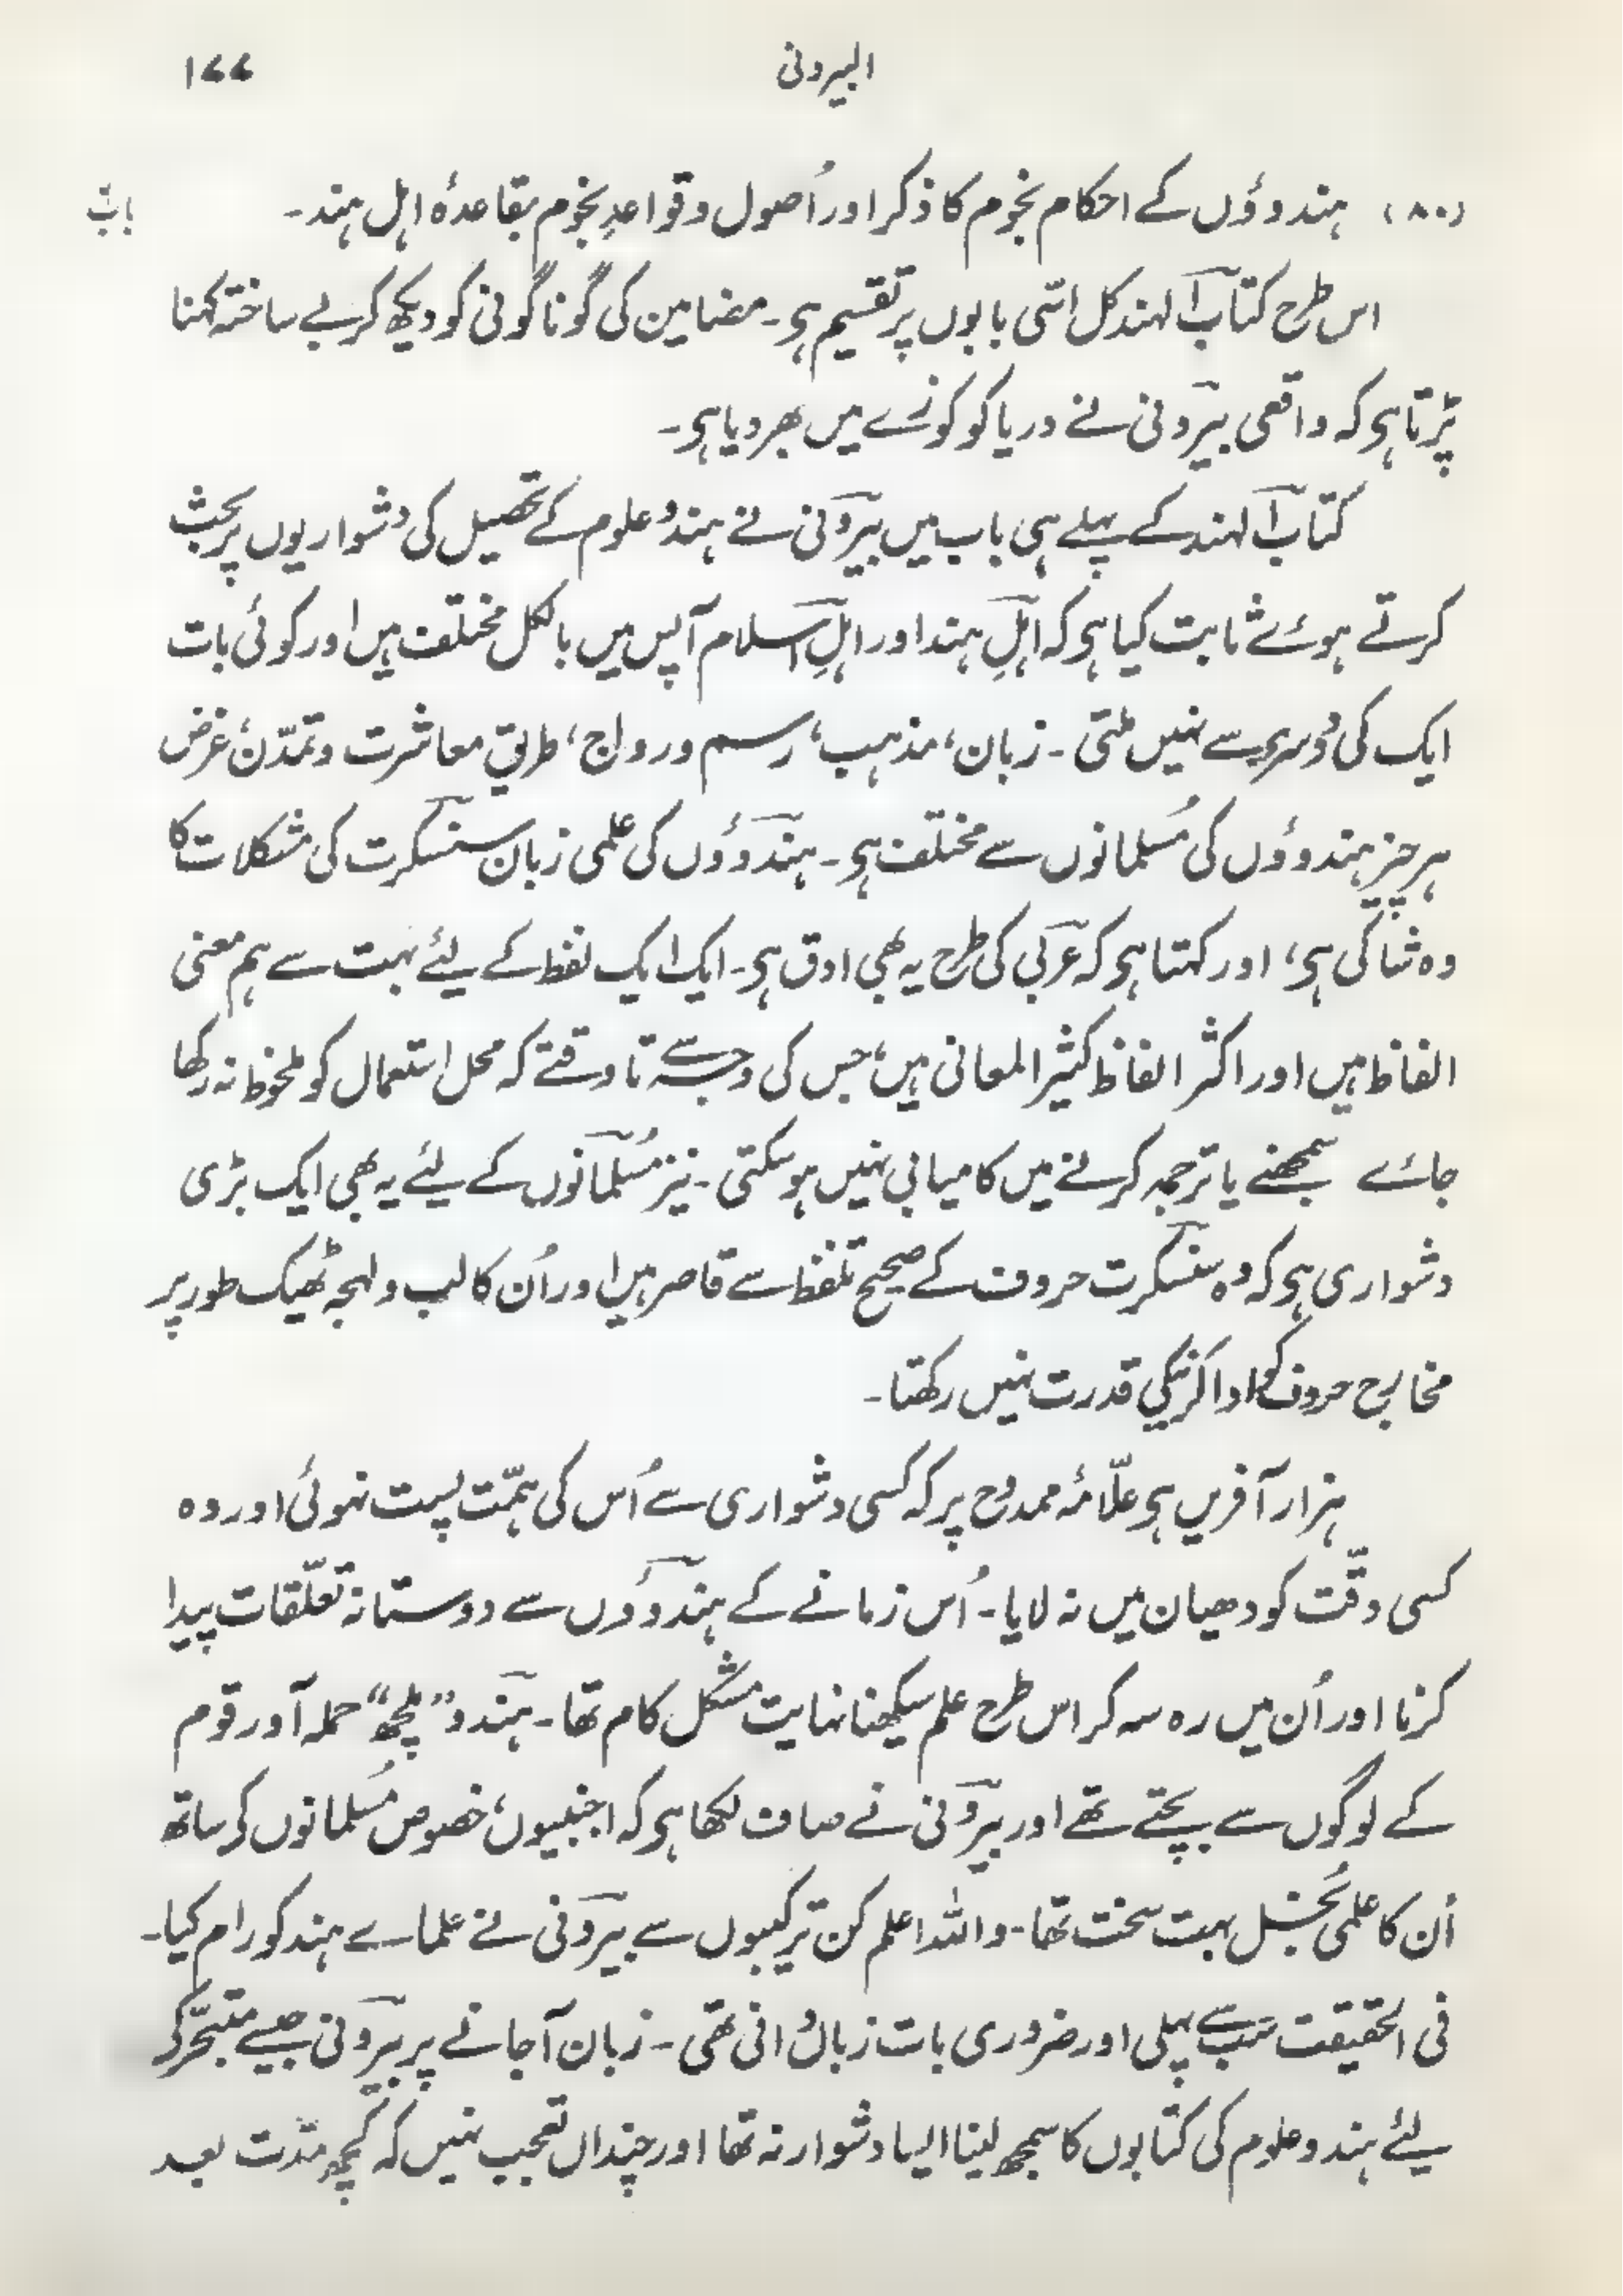 البیرونی ۱۷۷
(۸۰) ہندوؤں کے احکام نجوم کا ذکر اور اُصول و قواعدِ نجوم بقاعدۂ اہل ہند۔
باب
اس طرح کتاب الہند کل اسّی بابوں پر تقسیم ہی۔ مضامین کی گوناگونی کو دیکھ کر بے ساختہ کہنا
پڑتا ہی کہ واقعی بیرونی نے دریا کو کوزے میں بھر دیا ہی۔
کتاب الہند کے پہلے ہی باب میں بیرونی نے ہندو علوم کے تحصیل کی دشواریوں پر بحث
کرتے ہوئے ثابت کیا ہی کہ اہلِ ہند اور اہلِ اسلام آپس میں بالکل مختلف ہیں اور کوئی بات
ایک کی دُوسری سے نہیں ملتی ۔ زبان، مذہب، رسم و رواج، طریقِ معاشرت و تمدّن، غرض
ہر چیز ہندوؤں کی مُسلمانوں سے مختلف ہی۔ ہندوؤں کی علمی زبان سنسکرت کی مشکلات کا
وہ شاکی ہی، اور کہتا ہی کہ عربی کی طرح یہ بھی ادق ہی۔ ایک ایک لفظ کے لیئے بہت سے ہم معنی
الفاظ ہیں اور اکثر الفاظ کثیر المعانی ہیں، جس کی وجہ سے تا وقتے کہ محل استعمال کو ملحوظ نہ رکھا
جائے سمجھنے یا ترجمہ کرنے میں کامیابی نہیں ہو سکتی ۔ نیز مُسلمانوں کے لیئے یہ بھی ایک بڑی
دشواری ہی کہ وہ سنسکرت حروف کے صحیح تلفظ سے قاصر ہیں اور اُن کا لب و لہجہ ٹھیک طور پر
مخارج حروف کو ادا کرنیکی قدرت نہیں رکھتا۔
ہزار آفریں ہی علّامۂ ممدوح پر کہ کسی دشواری سے اُس کی ہمّت پست نہوئی اور وہ
کسی دقّت کو دھیان میں نہ لایا۔ اُس زمانے کے ہندوؤں سے دوستانہ تعلّقات پیدا
کرنا اور اُن میں رہ سہ کر اس طرح علم سیکھنا نہایت مشکل کام تھا۔ ہندو ”ملچھ“ حملہ آور قوم
کے لوگوں سے بچتے تھے اور بیرونی نے صاف لکھا ہی کہ اجنبیوں، خصوص مُسلمانوں کی ساتھ
اُن کا علمی بُخل بہت سخت تھا۔ واللہ اعلم کن ترکیبوں سے بیرونی نے علمائے ہند کو رام کیا۔
فی الحقیقت سب سے پہلی اور ضروری بات زباں دانی تھی ۔ زبان آجانے پر بیرونی جیسے متبحّر کی
لیئے ہندو علوم کی کتابوں کا سمجھ لینا ایسا دشوار نہ تھا اور چنداں تعجب نہیں کہ کچھ مدّت بعد